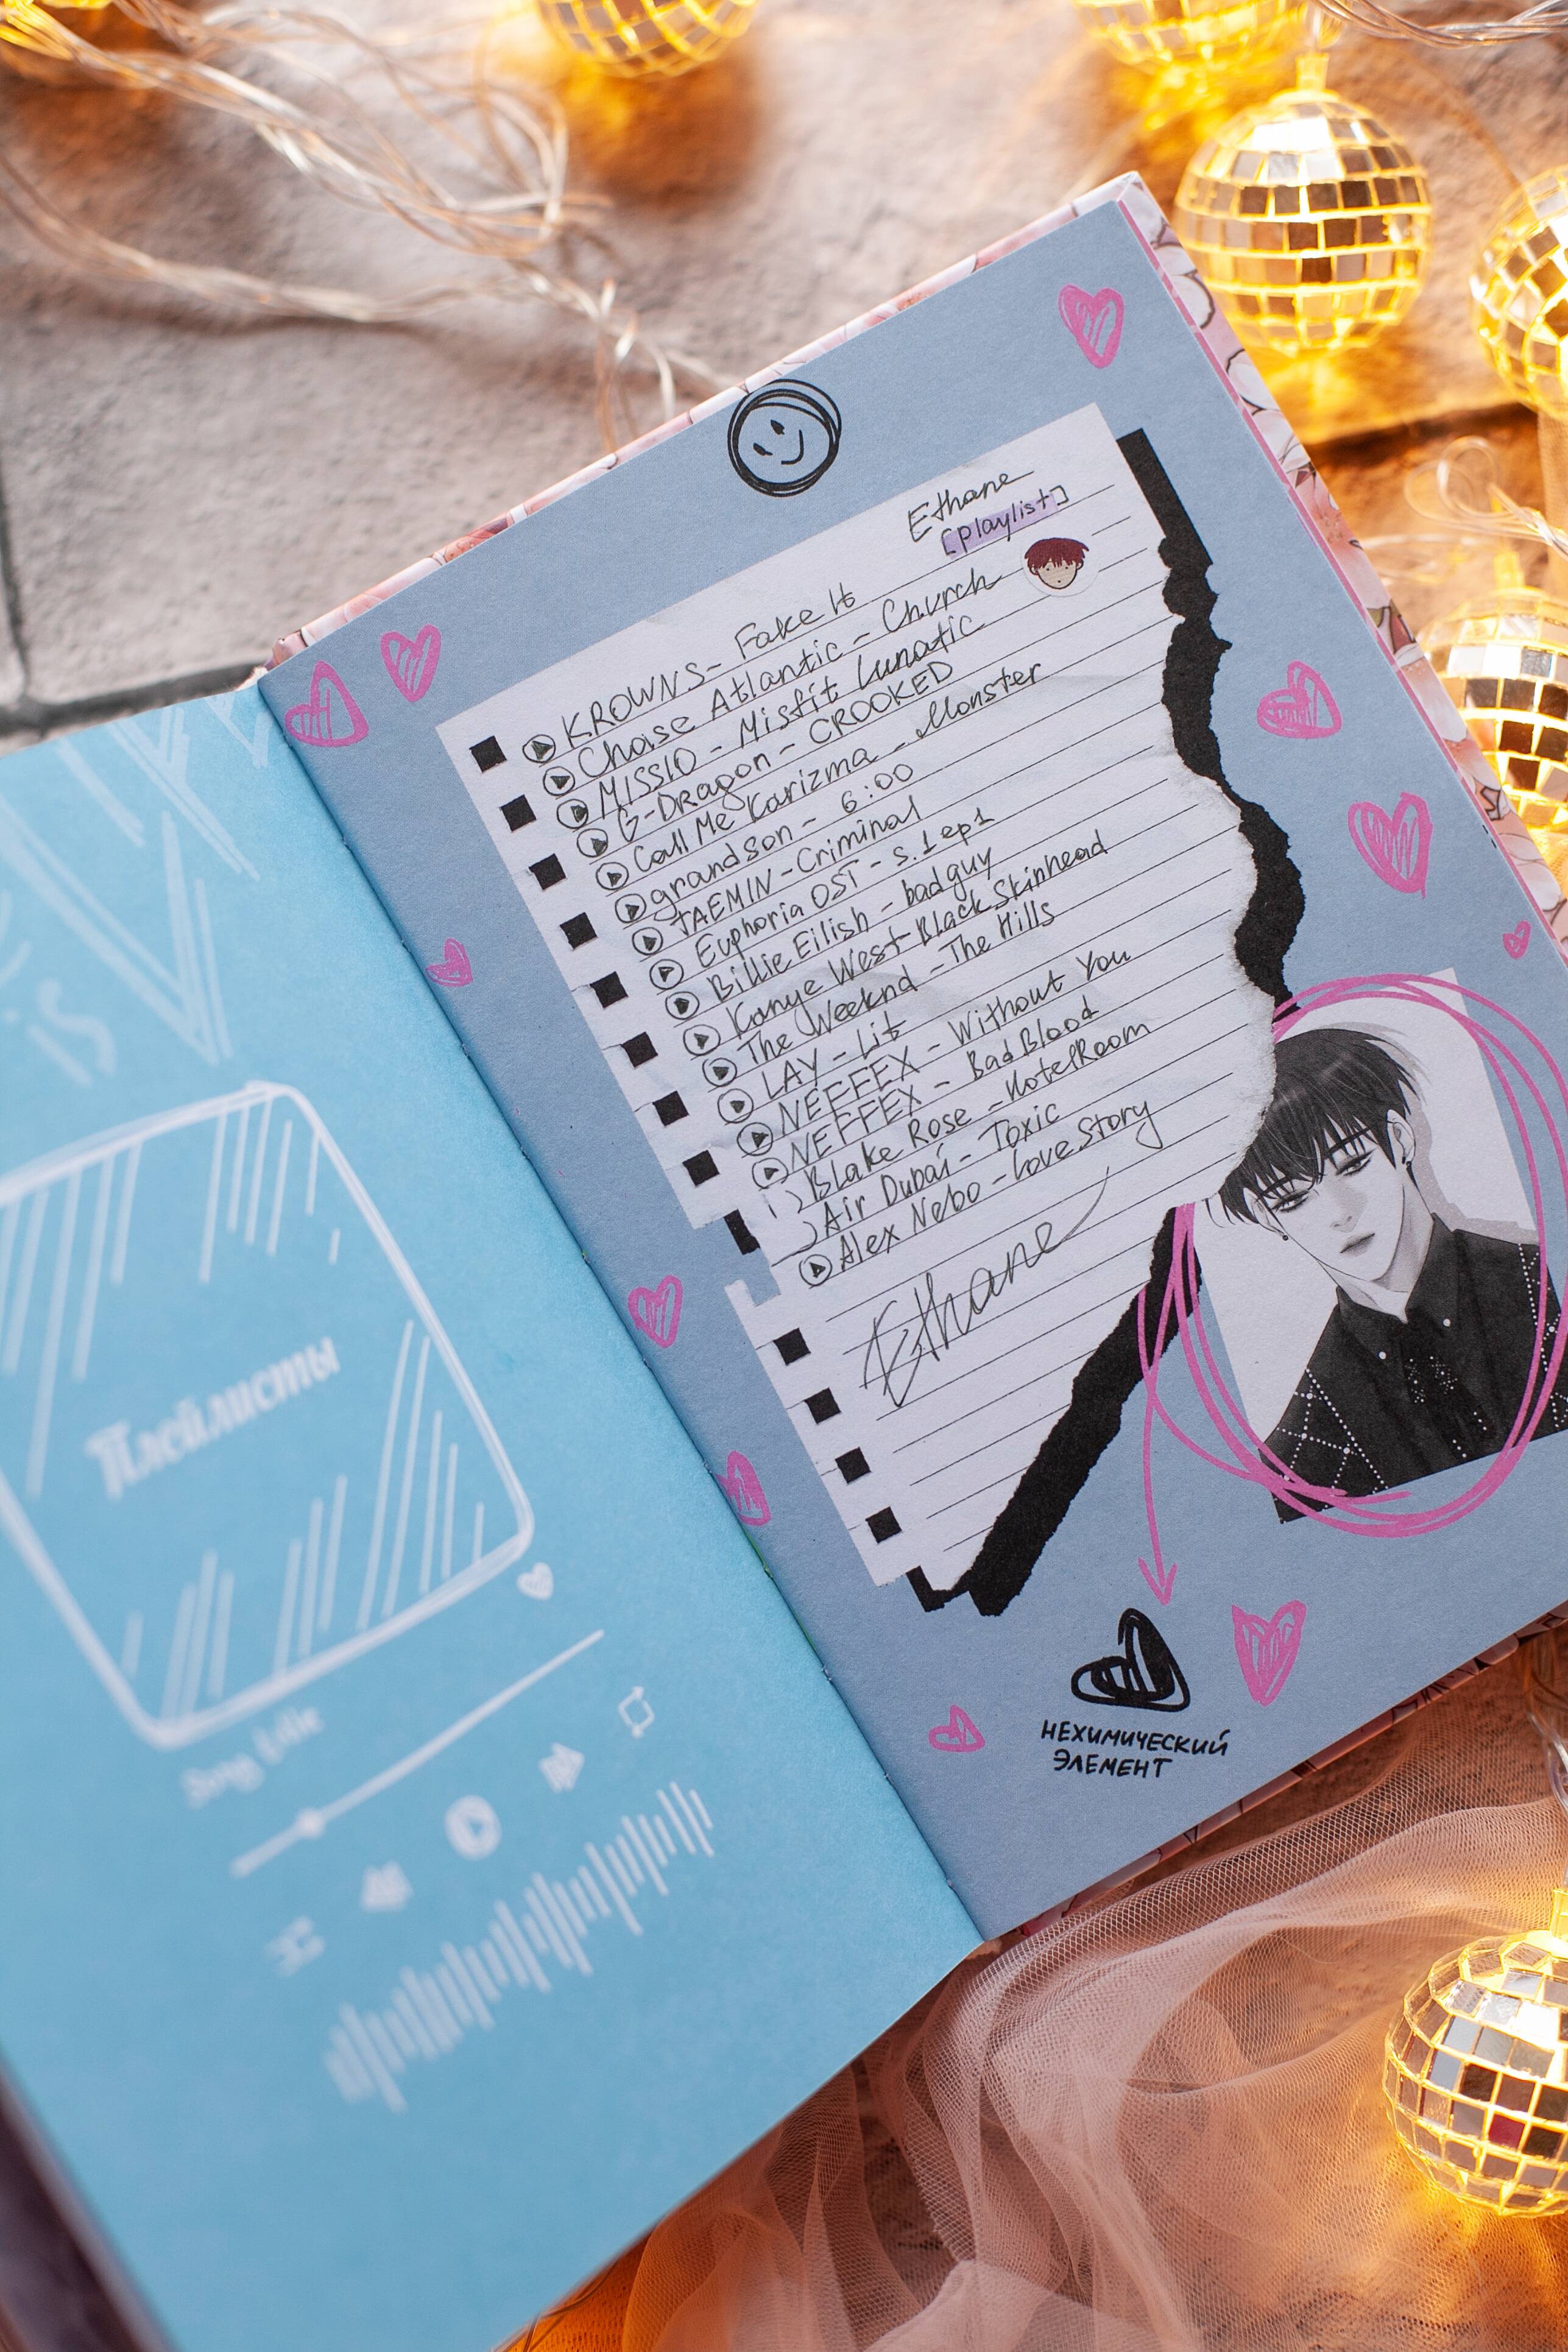 is
Плейлисты
Song title
Ethane
[playlist]
KROWNS - Fake It
Chase Atlantic - Church
MISSIO - Misfit Lunatic
G-Dragon - CROOKED
Call Me Karizma - Monster
grandson - 6:00
JAEMIN - Criminal
Euphoria OST - s.1 ep1
Billie Eilish - bad guy
Kanye West - Black Skinhead
The Weeknd - The Hills
LAY - Lit
NEFFEX - Without You
NEFFEX - Bad Blood
Blake Rose - Hotel Room
Air Dubai - Toxic
Alex Nebo - Love Story
Ethane
НЕХИМИЧЕСКИЙ
ЭЛЕМЕНТ